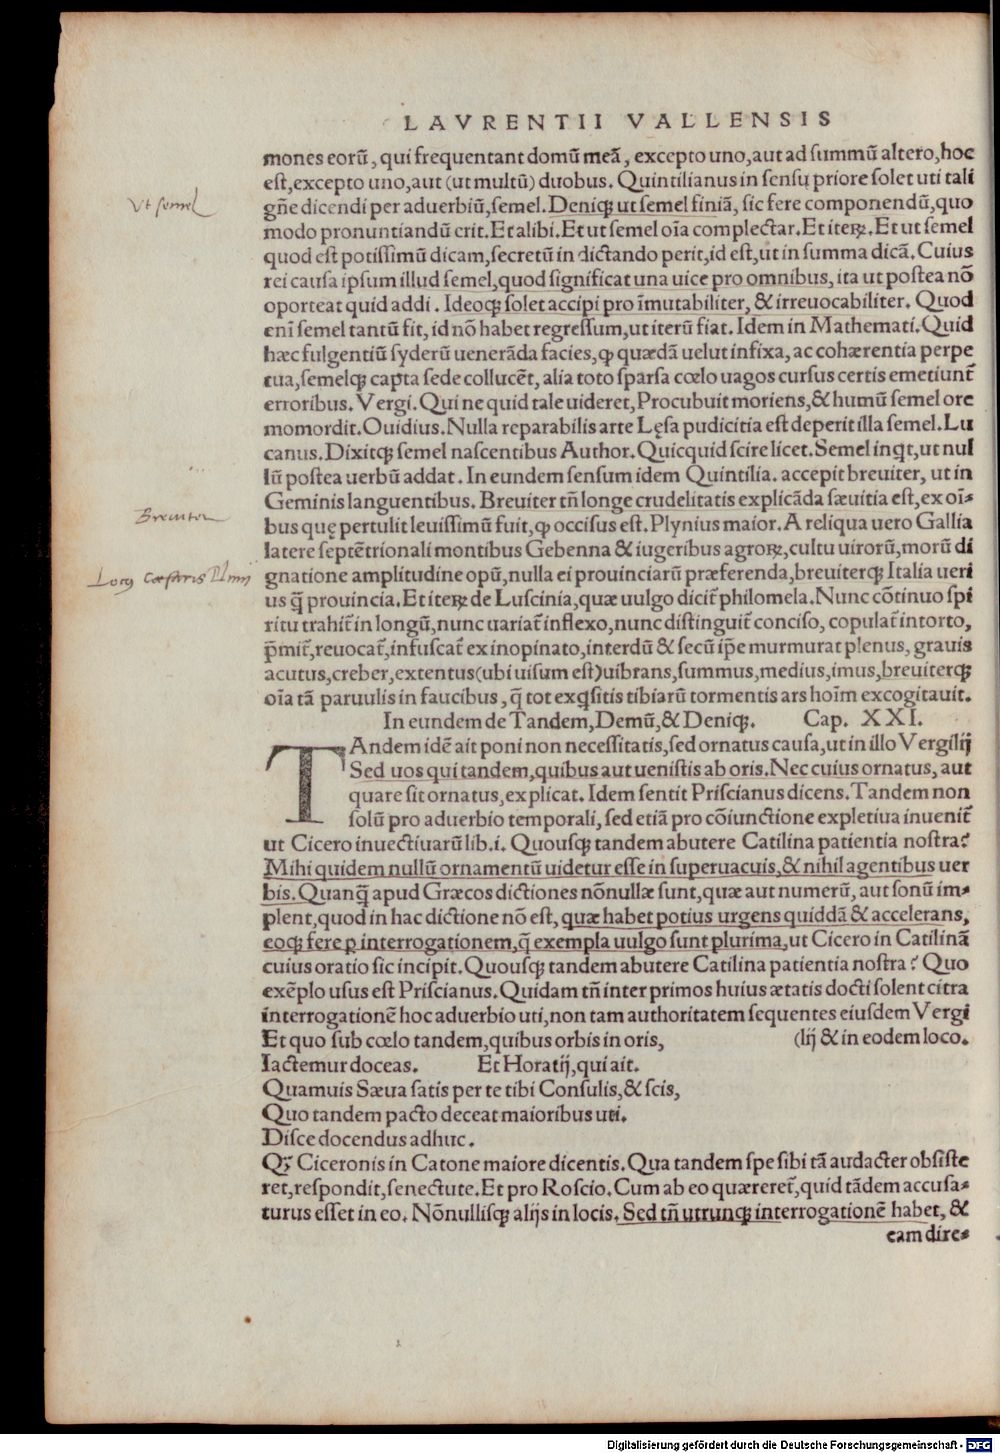 LAVRENTII VALLENSIS
mones eorũ, qui frequentant domũ meã, excepto uno, aut ad summũ altero, hoc
est, excepto uno, aut (ut multũ) duobus. Quintilianus in sensu priore solet uti tali
Vt semel
gñe dicendi per aduerbiũ, semel. Deniqꝫ ut semel finiã, sic fere componendũ, quo
modo pronuntiandũ erit. Et alibi. Et ut semel oĩa complectar. Et iteꝝ. Et ut semel
quod est potissimũ dicam, secretũ in dictando perit, id est, ut in summa dicã. Cuius
rei causa ipsum illud semel, quod significat una uice pro omnibus, ita ut postea nõ
oporteat quid addi. Ideoqꝫ solet accipi pro ĩmutabiliter, & irreuocabiliter. Quod
enĩ semel tantũ fit, id nõ habet regressum, ut iterũ fiat. Idem in Mathemati. Quid
hæc fulgentiũ syderũ uenerãda facies, ꝙ quædã uelut infixa, ac cohærentia perpe
tua, semelqꝫ capta sede collucẽt, alia toto sparsa cœlo uagos cursus certis emetiunt̃
erroribus. Vergi. Qui ne quid tale uideret, Procubuit moriens, & humũ semel ore
momordit. Ouidius. Nulla reparabilis arte Lęsa pudicitia est deperit illa semel. Lu
canus. Dixitqꝫ semel nascentibus Author. Quicquid scire licet. Semel inqt, ut nul
lũ postea uerbũ addat. In eundem sensum idem Quintilia. accepit breuiter, ut in
Geminis languentibus. Breuiter tñ longe crudelitatis explicãda sæuitia est, ex oĩ-
Breuiter
bus quę pertulit leuissimũ fuit, ꝙ occisus est. Plynius maior. A reliqua uero Gallia
latere septẽtrionali montibus Gebenna & iugeribus agroꝝ, cultu uirorũ, morũ di
Plinij
gnatione amplitudine opũ, nulla ei prouinciarũ præferenda, breuiterqꝫ Italia ueri
us q̃ prouincia. Et iteꝝ de Luscinia, quæ uulgo dicit̃ philomela. Nunc cõtinuo spi
ritu trahit̃ in longũ, nunc uariat̃ inflexo, nunc distinguit̃ conciso, copulat̃ intorto,
p̃mit̃, reuocat̃, infuscat̃ ex inopinato, interdũ & secũ ip̃e murmurat plenus, grauis
acutus, creber, extentus (ubi uisum est) uibrans, summus, medius, imus, breuiterqꝫ
oĩa tã paruulis in faucibus, q̃ tot exqsitis tibiarũ tormentis ars hoĩm excogitauit.
In eundem de Tandem, Demũ, & Deniqꝫ. Cap. XXI.
TAndem idẽ ait poni non necessitatis, sed ornatus causa, ut in illo Vergilij
Sed uos qui tandem, quibus aut uenistis ab oris. Nec cuius ornatus, aut
quare sit ornatus, explicat. Idem sentit Priscianus dicens. Tandem non
solũ pro aduerbio temporali, sed etiã pro cõiunctione expletiua inuenit̃
ut Cicero inuectiuarũ lib. i. Quousqꝫ tandem abutere Catilina patientia nostra?
Mihi quidem nullũ ornamentũ uidetur esse in superuacuis, & nihil agentibus uer
bis. Quanq̃ apud Græcos dictiones nõnullæ sunt, quæ aut numerũ, aut sonũ im-
plent, quod in hac dictione nõ est, quæ habet potius urgens quiddã & accelerans,
eoqꝫ fere ꝑ interrogationem, q̃ exempla uulgo sunt plurima, ut Cicero in Catilinã
cuius oratio sic incipit. Quousqꝫ tandem abutere Catilina patientia nostra? Quo
exẽplo usus est Priscianus. Quidam tñ inter primos huius ætatis docti solent citra
interrogationẽ hoc aduerbio uti, non tam authoritatem sequentes eiusdem Vergi
Et quo sub cœlo tandem, quibus orbis in oris, (lij & in eodem loco.
Iactemur doceas. Et Horatij, qui ait.
Quamuis Sæua satis per te tibi Consulis, & scis,
Quo tandem pacto deceat maioribus uti.
Disce docendus adhuc.
Qꝫ Ciceronis in Catone maiore dicentis. Qua tandem spe sibi tã audacter obsiste
ret, respondit, senectute. Et pro Roscio. Cum ab eo quæreret̃, quid tãdem accusa-
turus esset in eo. Nõnullisqꝫ alijs in locis. Sed tñ utrunqꝫ interrogationẽ habet, &
eam dire-
Digitalisierung gefördert durch die Deutsche Forschungsgemeinschaft - DFG